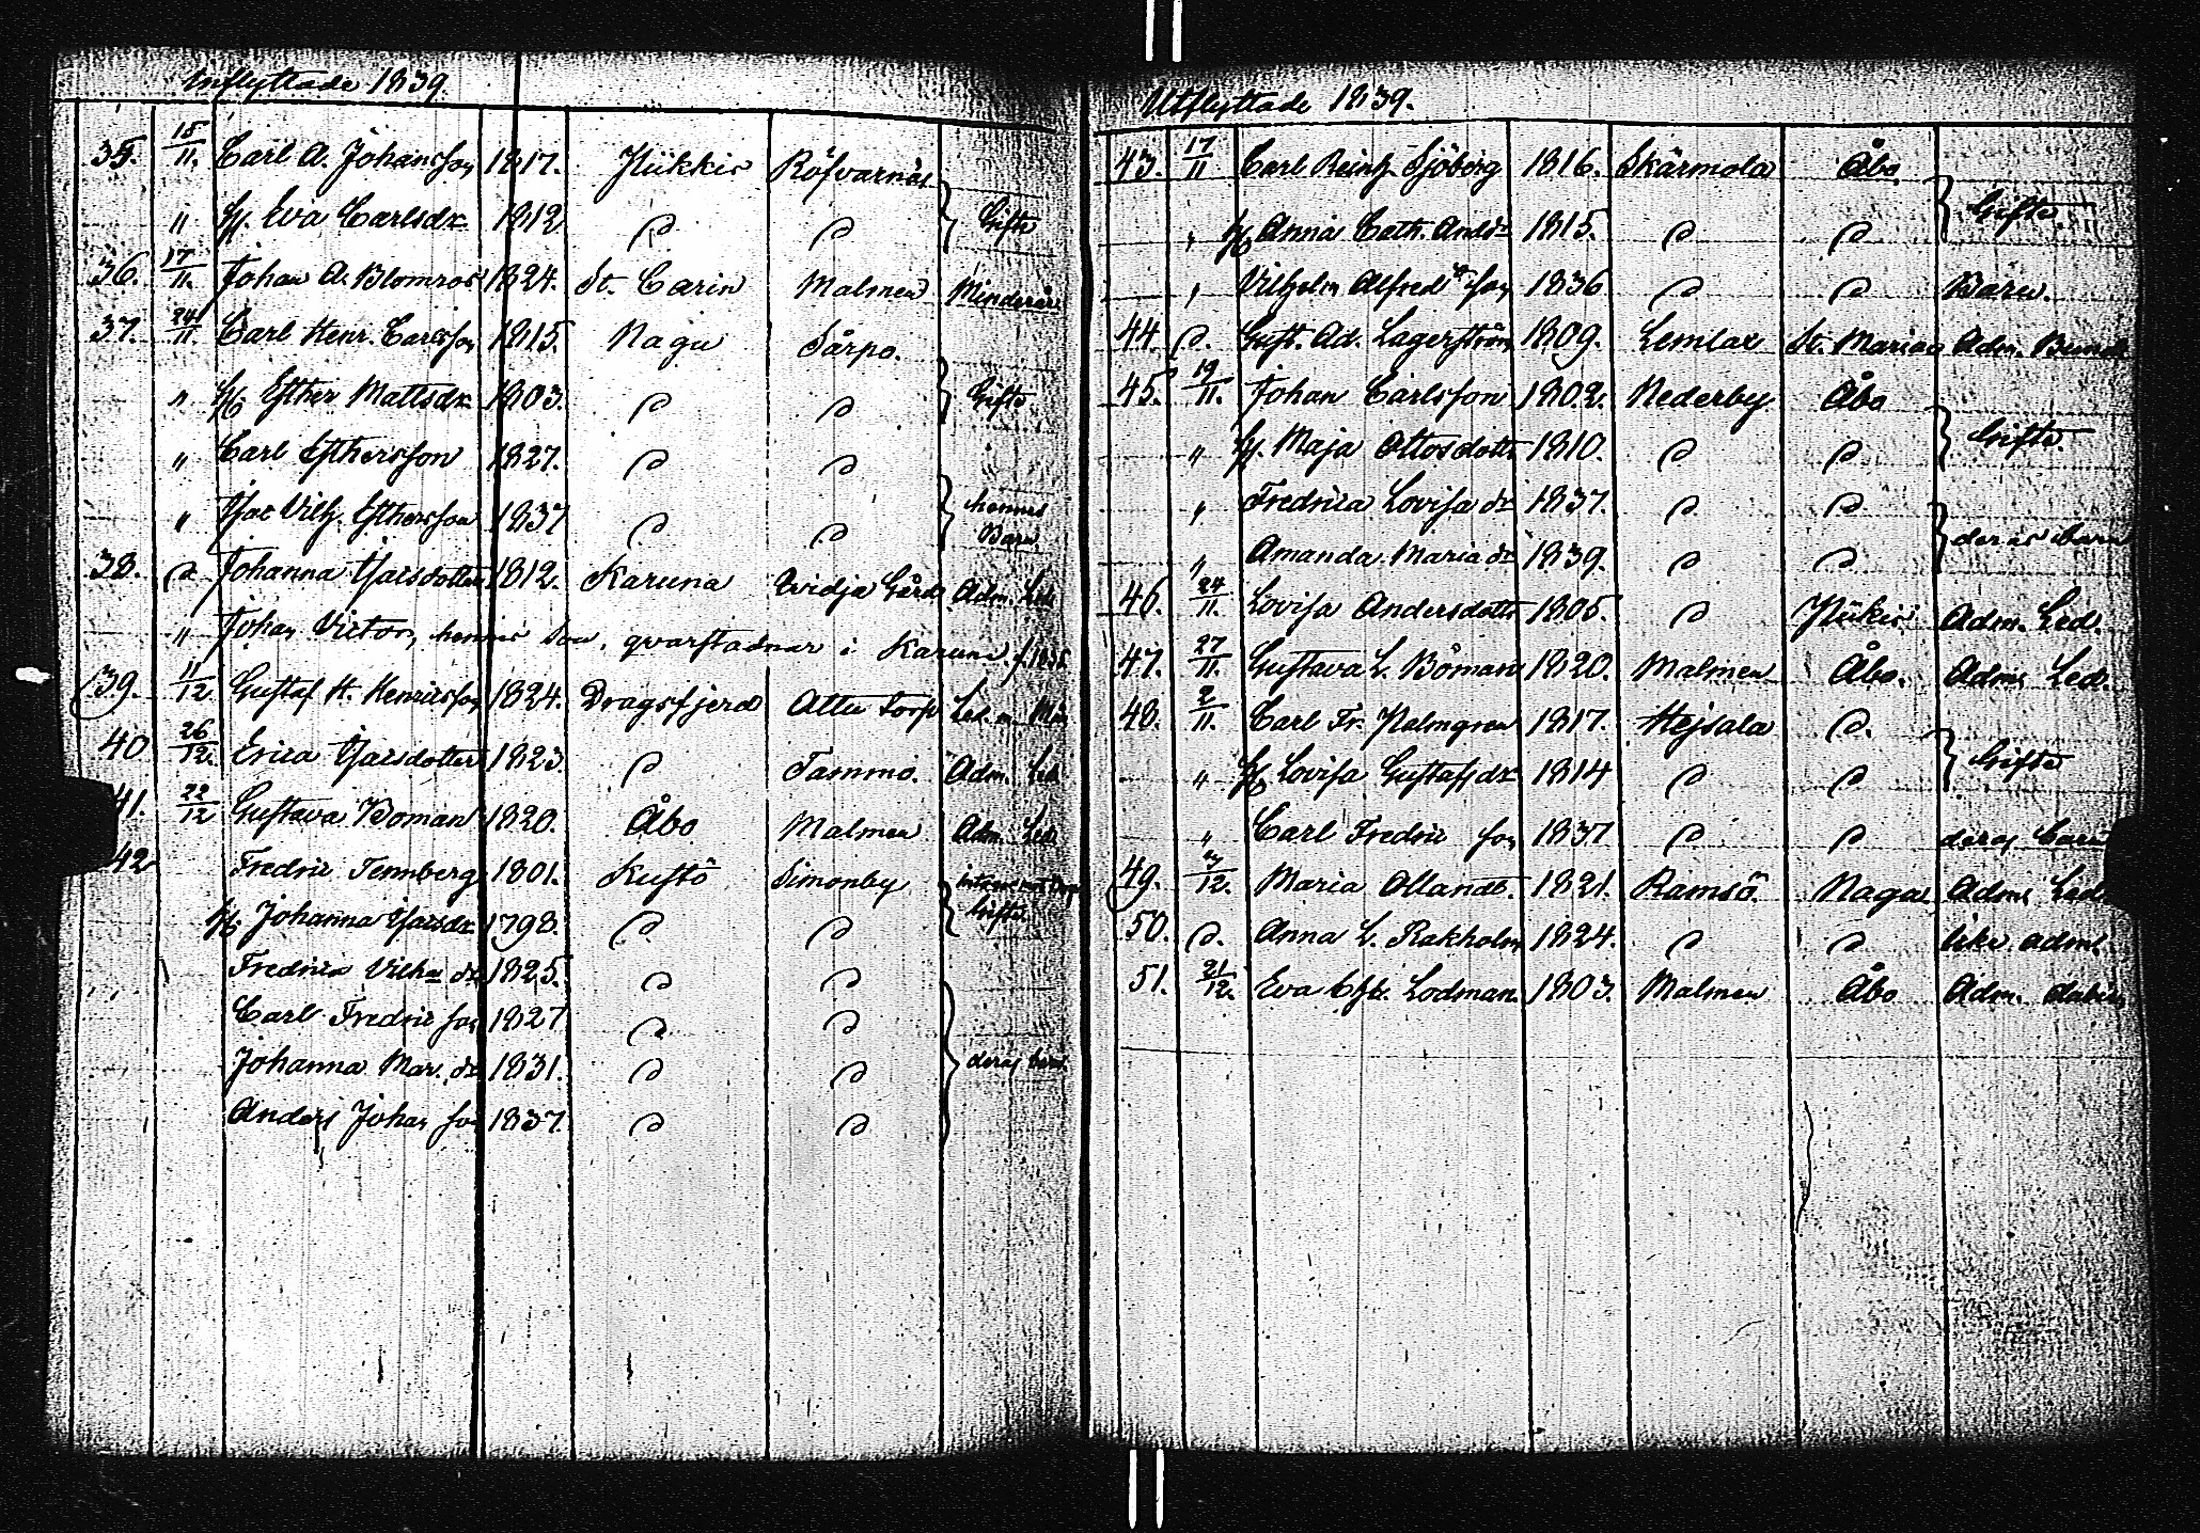 Inflyttade 1839.
35. 15/11. Carl A. Johansson 1817. Hiikkis Röfvarnäs
" H. Eva Carlsdr 1812 D D } Gifte
36. 17/11. Johan A. Blomros 1824. St. Carin Malmen Minderår.
37. 24/11. Carl Henr. Carlsson 1815. Nagu Sårpo.
" H. Esther Mattsdr 1803. D D } Gifte
" Carl Esthersson 1827. D D
" Isac Vilh. Esthersson 1837 D D } hennes Barn
38. D Johanna Isacsdotter 1812. Karuna Qvidja Gård Adm. Led.
" Johan Victor, hennes son, qvarstadnar i Karuna.
39. 11/12 Gustaf H. Henricsson 1824. Dragsfjerd Attu torp Led. o. Min
40 26/12. Erica Isacsdotter 1823. D Tammo. Adm. Led
41. 22/12 Gustava Boman 1820. Åbo Malmen Adm. Led.
42 Fredric Tennberg 1801. Kustö Simonby
H. Johanna Isacsdr 1798. D D } Gifte
Fredrica Vilhа dr 1825. D D
Carl Fredric son 1827 D D
Johanna Mar. dr 1831. D D } deras barn.
Anders Johan son 1837. D D
Utflyttade 1839.
43. 17/11 Carl Reinh. Sjöberg 1816. Skärmola Åbo
" H. Anna Cath. Andsdr 1815. D D } Gifte
" Vilhelm Alfred son 1836 D D Barn.
44 D. Gust. Ad. Lagerström 1809. Lemlax St. Mariae Adm.
45. 19/11. Johan Carlsson 1802. Nederby Åbo
" H. Maja Ottosdottr 1810. D D } Gifte
" Fredrica Lovisa dr 1837. D D
" Amanda Maria dr 1839. D D } deras barn
46. 24/11. Lovisa Andersdottr 1805. D Hiikis Adm. Led.
47. 27/11. Gustava L. Böman 1820. Malmen Åbo. Adm. Led.
48. 2/11. Carl Fr. Palmgren 1817. Hejsala D.
" H. Lovisa Gustafsdr 1814 D D } Gifte
" Carl Fredric son 1837 D D deras barn
49. /12. Maria Ollandt. 1821. Ramsö. Nagu Adm. Led.
50. D. Anna L. Rakholm 1824. D D icke adm.
51. 21/12. Eva Chr. Lodman. 1803. Malmen Åbo Adm.